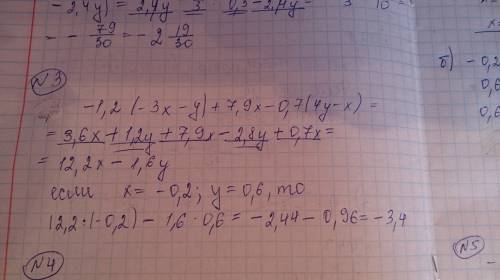 -2,4y) = 2,4y 3 · 0,5 - 2,4y
= - 79/30 = -2 19/30
N3
-1,2 (-3x-y)+7,9x-0,7(4y-x) =
= 3,6x+1,2y+7,9x-2,8y+0,7x=
= 12,2x-1,6y
если x= -0,2; y=0,6, то
12,2·(-0,2) - 1,6·0,6 = -2,44-0,96=-3,4
N4
б) -0,2
0,6
0,6
N5